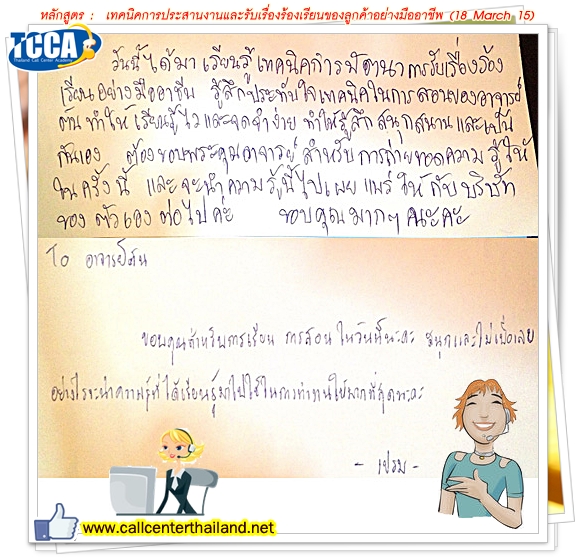 หลักสูตร : เทคนิคการประสานงานและรับเรื่องร้องเรียนของลูกค้าอย่างมืออาชีพ (18 March 15)
TCCA
Thailand Call Center Academy
วันนี้ได้มาเรียนรู้เทคนิคการพัฒนาการรับเรื่องร้อง
เรียนอย่างมืออาชีพ รู้สึกประทับใจเทคนิคในการสอนของอาจารย์
ต้น ทำให้เรียนรู้ไวและจดจำง่าย ทำให้รู้สึกสนุกสนานและเป็น
กันเอง ต้องขอบพระคุณอาจารย์ สำหรับการถ่ายทอดความรู้ให้
ในครั้งนี้ และจะนำความรู้นี้ไปเผยแพร่ให้กับบริษัท
ของตัวเองต่อไปค่ะ ขอบคุณมากๆ คนะคะ
To อาจารย์ต้น
ขอบคุณสำหรับการเรียน การสอน ในวันนี้นะคะ สนุกและไม่เบื่อเลย
อย่างไรจะนำความรู้ที่ได้เรียนรู้มาไปใช้ในการทำงานให้มากที่สุดนะคะ
- เปรม -
www.callcenterthailand.net